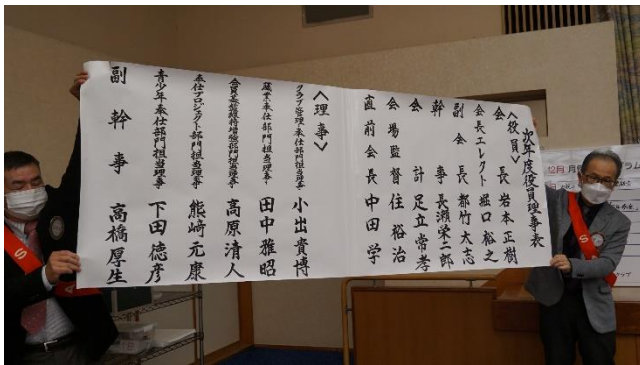 次年度役員理事表
〈役員〉
会長 岩本正樹
会長エレクト 堀口裕之
副会長 都竹太志
幹事 長瀬栄二郎
会計 足立常孝
会場監督 住裕治
直前会長 中田学
〈理事〉
クラブ管理・奉仕部門担当理事 小出貴博
職業奉仕部門担当理事 田中雅昭
会員基盤維持増強部門担当理事 高原清人
奉仕プロジェクト部門担当理事 熊崎元康
青少年奉仕部門担当理事 下田徳彦
副幹事 高橋厚生
12月